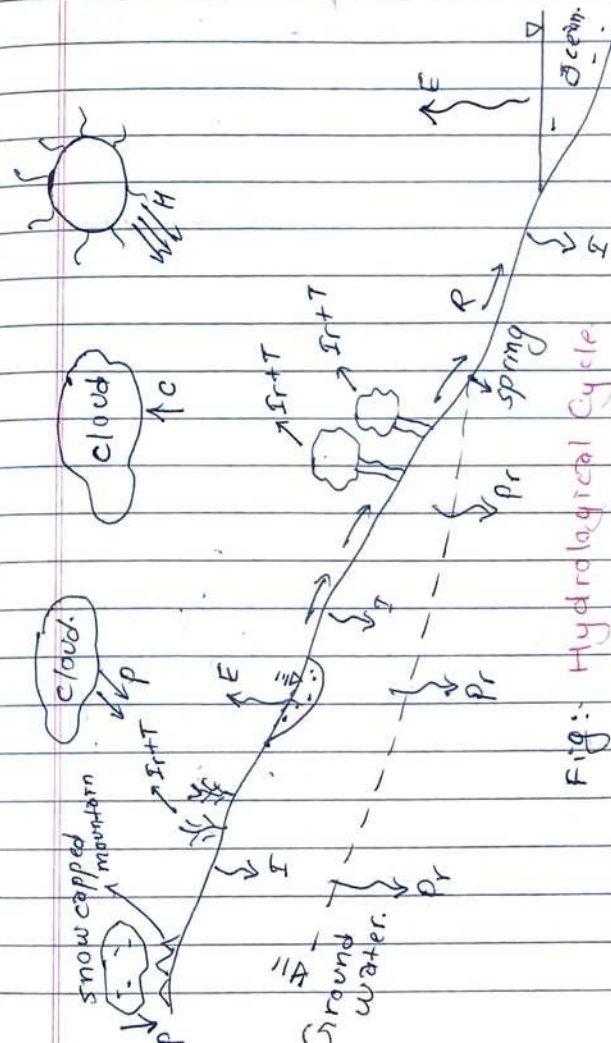 snow capped
mountain
P
cloud.
P
cloud
C
H
Ir+T
E
Ir+T
Ir+T
E
I
I
R
I
Ocean.
spring
Ground
water.
Pr
Pr
Pr
Fig:- Hydrological Cycle